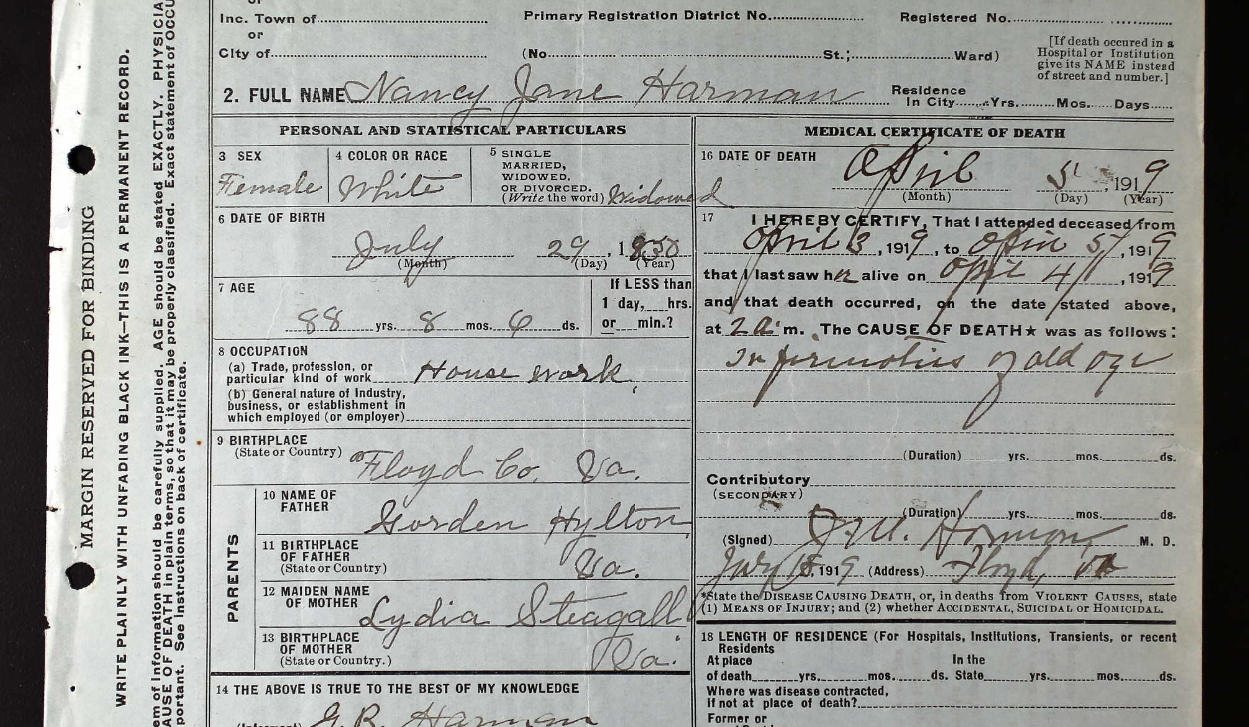 or
Inc. Town of
Primary Registration District No.
Registered No.
or
City of
(No. St.; Ward)
[If death occured in a
Hospital or Institution
give its NAME instead
of street and number.]
2. FULL NAME Nancy Jane Harman
Residence
In City Yrs. Mos. Days
PERSONAL AND STATISTICAL PARTICULARS
3 SEX
Female
4 COLOR OR RACE
White
5 SINGLE
MARRIED,
WIDOWED,
OR DIVORCED.
(Write the word) Widowed
6 DATE OF BIRTH
July 29, 1830
(Month) (Day) (Year)
7 AGE
88 yrs. 8 mos. 6 ds.
If LESS than
1 day, hrs.
or min.?
8 OCCUPATION
(a) Trade, profession, or
particular kind of work House work
(b) General nature of Industry,
business, or establishment in
which employed (or employer)
9 BIRTHPLACE
(State or Country) Floyd Co. Va.
PARENTS
10 NAME OF
FATHER
Gorden Hylton
11 BIRTHPLACE
OF FATHER
(State or Country) Va.
12 MAIDEN NAME
OF MOTHER
Lydia Steagall
13 BIRTHPLACE
OF MOTHER
(State or Country.) Va.
14 THE ABOVE IS TRUE TO THE BEST OF MY KNOWLEDGE
G. R. Harman
MEDICAL CERTIFICATE OF DEATH
16 DATE OF DEATH
April 5 1919
(Month) (Day) (Year)
17 I HEREBY CERTIFY, That I attended deceased from
April 3, 1919, to 5, 1919
that I last saw her alive on April 4, 1919
and that death occurred, on the date stated above,
at 2 a m. The CAUSE OF DEATH★ was as follows:
Infirmities of old age
(Duration) yrs. mos. ds.
Contributory
(SECONDARY)
(Duration) yrs. mos. ds.
(Signed) M. D.
1919 (Address) Floyd, Va
*State the DISEASE CAUSING DEATH, or, in deaths from VIOLENT CAUSES, state
(1) MEANS OF INJURY; and (2) whether ACCIDENTAL, SUICIDAL or HOMICIDAL.
18 LENGTH OF RESIDENCE (For Hospitals, Institutions, Transients, or recent
Residents
At place In the
of death yrs. mos. ds. State yrs. mos. ds.
Where was disease contracted,
if not at place of death?
Former or
MARGIN RESERVED FOR BINDING
WRITE PLAINLY WITH UNFADING BLACK INK—THIS IS A PERMANENT RECORD.
em of information should be carefully supplied. AGE should be stated EXACTLY. PHYSICIA
AUSE OF DEATH in plain terms, so that it may be properly classified. Exact statement of OCCU
portant. See instructions on back of certificate.